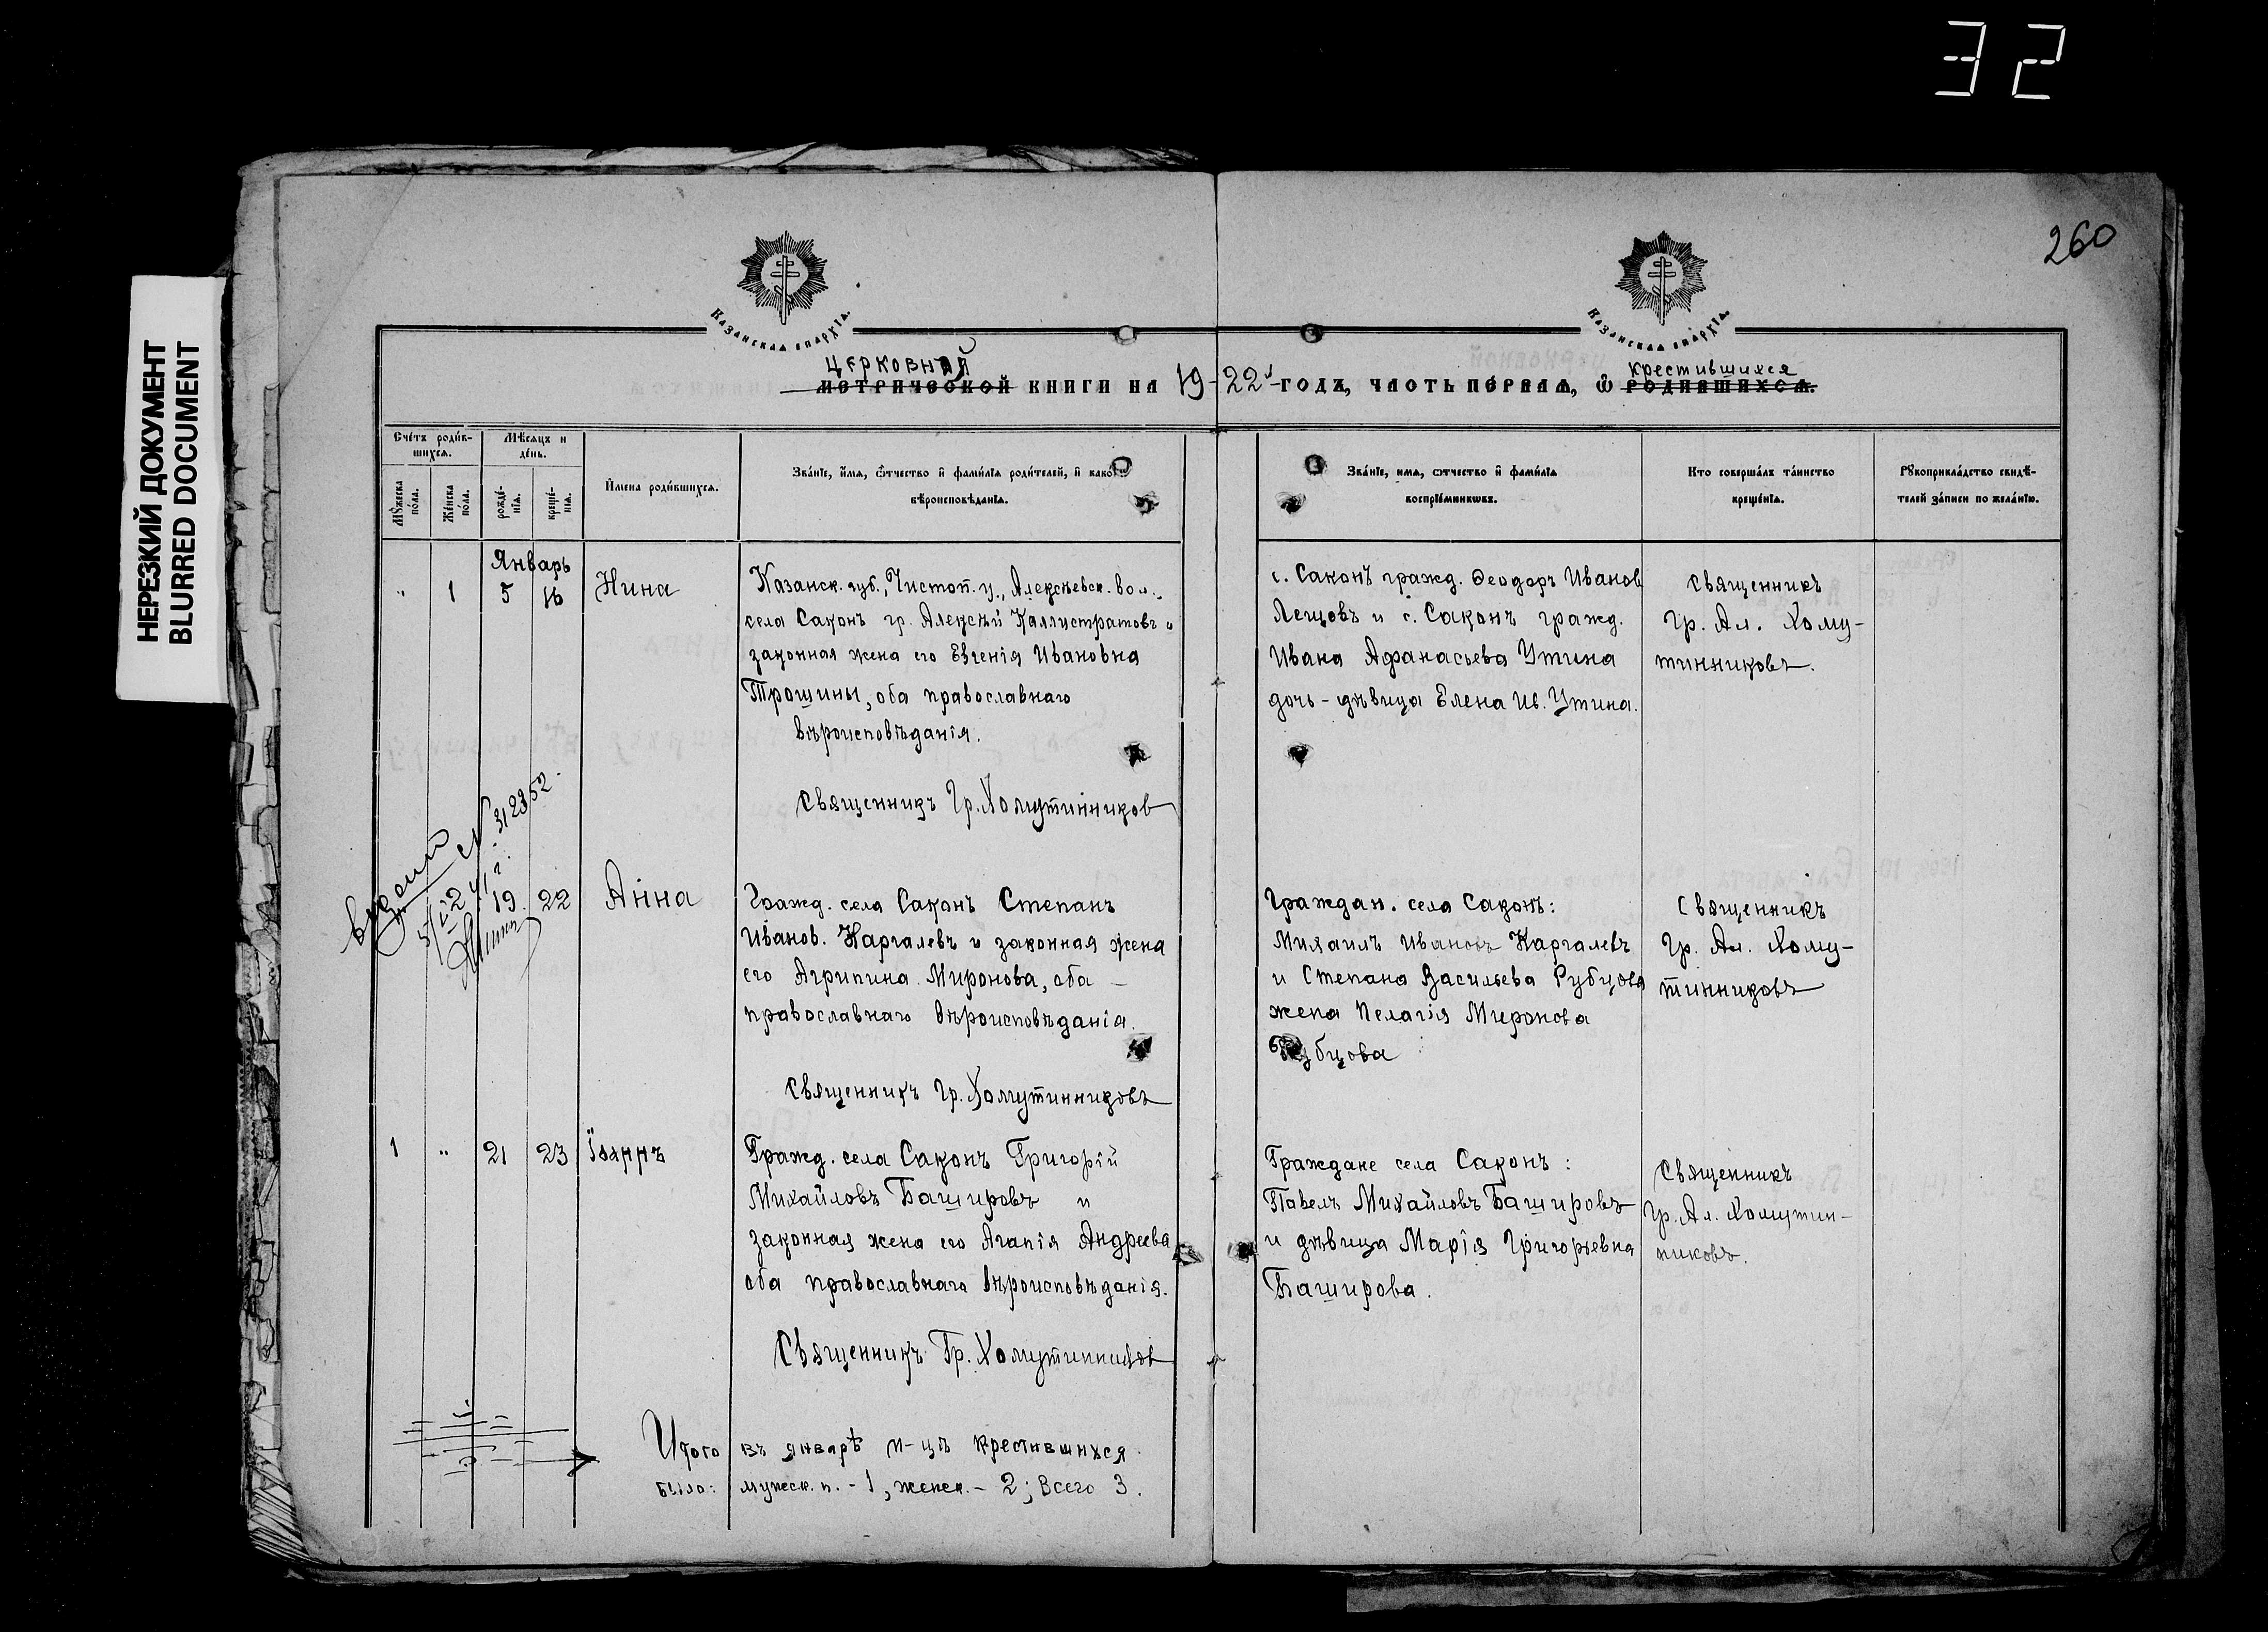 32
НЕРЕЗКИЙ ДОКУМЕНТ
BLURRED DOCUMENT
260
Казанская епархїѧ.
Казанская епархїѧ.
церковной
метрической книги на 19-22й годъ, часть пе́рваѧ, ѡ҆ родившихсѧ.
крестившихся
Сче́тъ роди́в-
шихсѧ.
Мѣ́сѧцъ и
де́нь.
Мꙋ́жеска
по́ла.
Же́нска
по́ла.
рожде́-
нїѧ.
креще́-
нїѧ.
И҆мена роди́вшихсѧ.
Зва́нїе, и҆́мѧ, ѻ҆́тчество и҆ фами́лїѧ роди́телей, и҆ како́гѡ
вѣроисповѣ́данїѧ.
Зва́нїе, и҆мѧ, ѻ҆тчество и҆ фами́лїѧ
воспрїе́мникѡвъ.
Кто соверша́лъ та́инство
креще́нїѧ.
Рꙋкоприкла́дство свидѣ́-
телей за́писи по жела́нїю.
Январь
" 1 5 16 Нина
Казанск. губ., Чистоп. у., Алексѣевск. вол.,
села Саконъ гр. Алексѣй Каллистратовъ и
законная жена его Евгенія Ивановна
Трошины, оба православнаго
вѣроисповѣданія.
Священникъ Гр. Хомутинников
с. Саконъ гражд. Ѳеодоръ Иванов
Лещовъ и с. Саконъ гражд.
Ивана Афанасьева Утина
дочь - дѣвица Елена Ив. Утина.
Священникъ
Гр. Ал. Хому-
тинниковъ.
19 22 Анна
Гражд. села Саконъ Степанъ
Иванов. Каргалевъ и законная жена
его Агрипина Миронова, оба -
православнаго вѣроисповѣданія.
Священникъ Гр. Хомутинниковъ
Граждан. села Саконъ:
Михаилъ Ивановъ Каргалевъ
и Степана Васильева Рубцова
жена Пелагія Миронова
Рубцова
Священникъ
Гр. Ал. Хому-
тинниковъ
1 " 21 23 Їоаннъ
Гражд. села Саконъ Григорій
Михайловъ Башировъ и
законная жена его Агапія Андреева
оба православнаго вѣроисповѣданія.
Священникъ Гр. Хомутинников
Граждане села Саконъ:
Павелъ Михайловъ Башировъ
и дѣвица Марія Григорьевна
Баширова.
Священникъ
Гр. Ал. Хомутин-
никовъ.
Итого въ январѣ м-цѣ крестившихся
было: мужеск. п. - 1, женск. - 2; Всего 3.